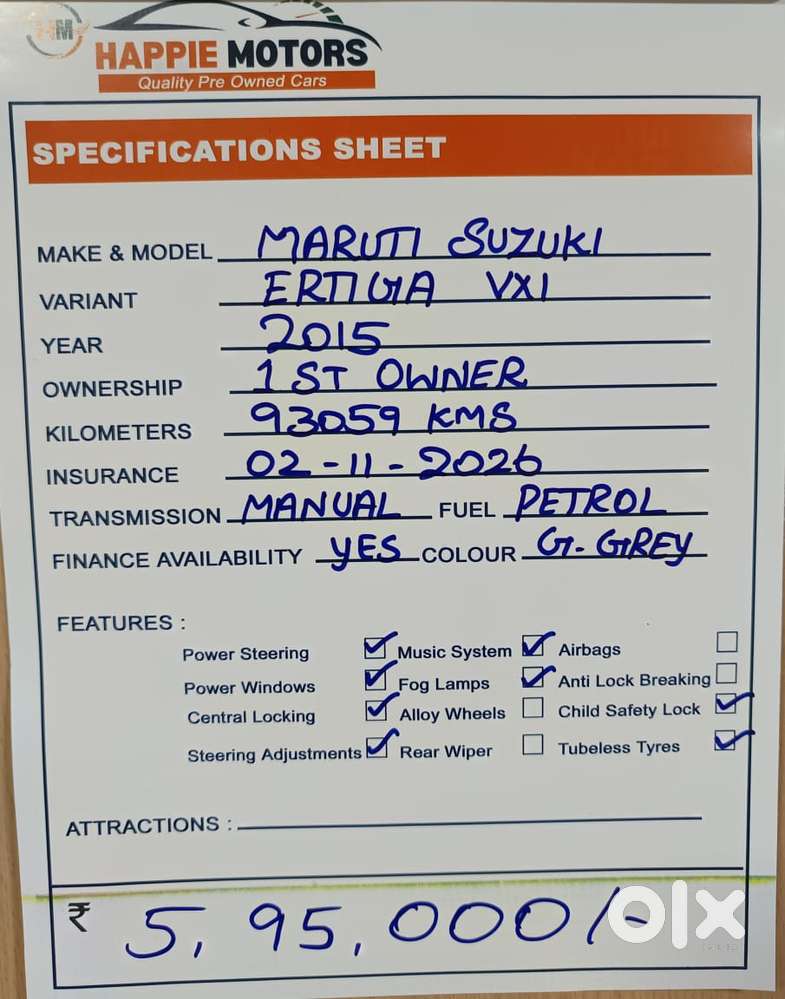 HM
HAPPIE MOTORS
Quality Pre Owned Cars
SPECIFICATIONS SHEET
MAKE & MODEL MARUTI SUZUKI
VARIANT ERTIGA VXI
YEAR 2015
OWNERSHIP 1ST OWNER
KILOMETERS 93059 KMS
INSURANCE 02-11-2026
TRANSMISSION MANUAL FUEL PETROL
FINANCE AVAILABILITY YES COLOUR G. GREY
FEATURES :
Power Steering Music System Airbags
Power Windows Fog Lamps Anti Lock Breaking
Central Locking Alloy Wheels Child Safety Lock
Steering Adjustments Rear Wiper Tubeless Tyres
ATTRACTIONS :
₹ 5,95,000/-
olx